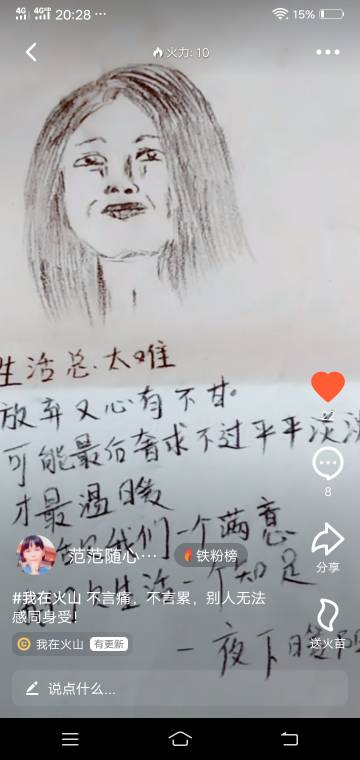 4G 4GHD 20:28 ···
15%
火力: 10
生活总.太难
放弃又心有不甘。
可能最后奢求不过平平淡淡
才最温暖
我们一个满意
生活一个知足
一夜下
8
分享
送火苗
范范随心···
铁粉榜
#我在火山 不言痛，不言累，别人无法
感同身受!
我在火山 有更新
说点什么...